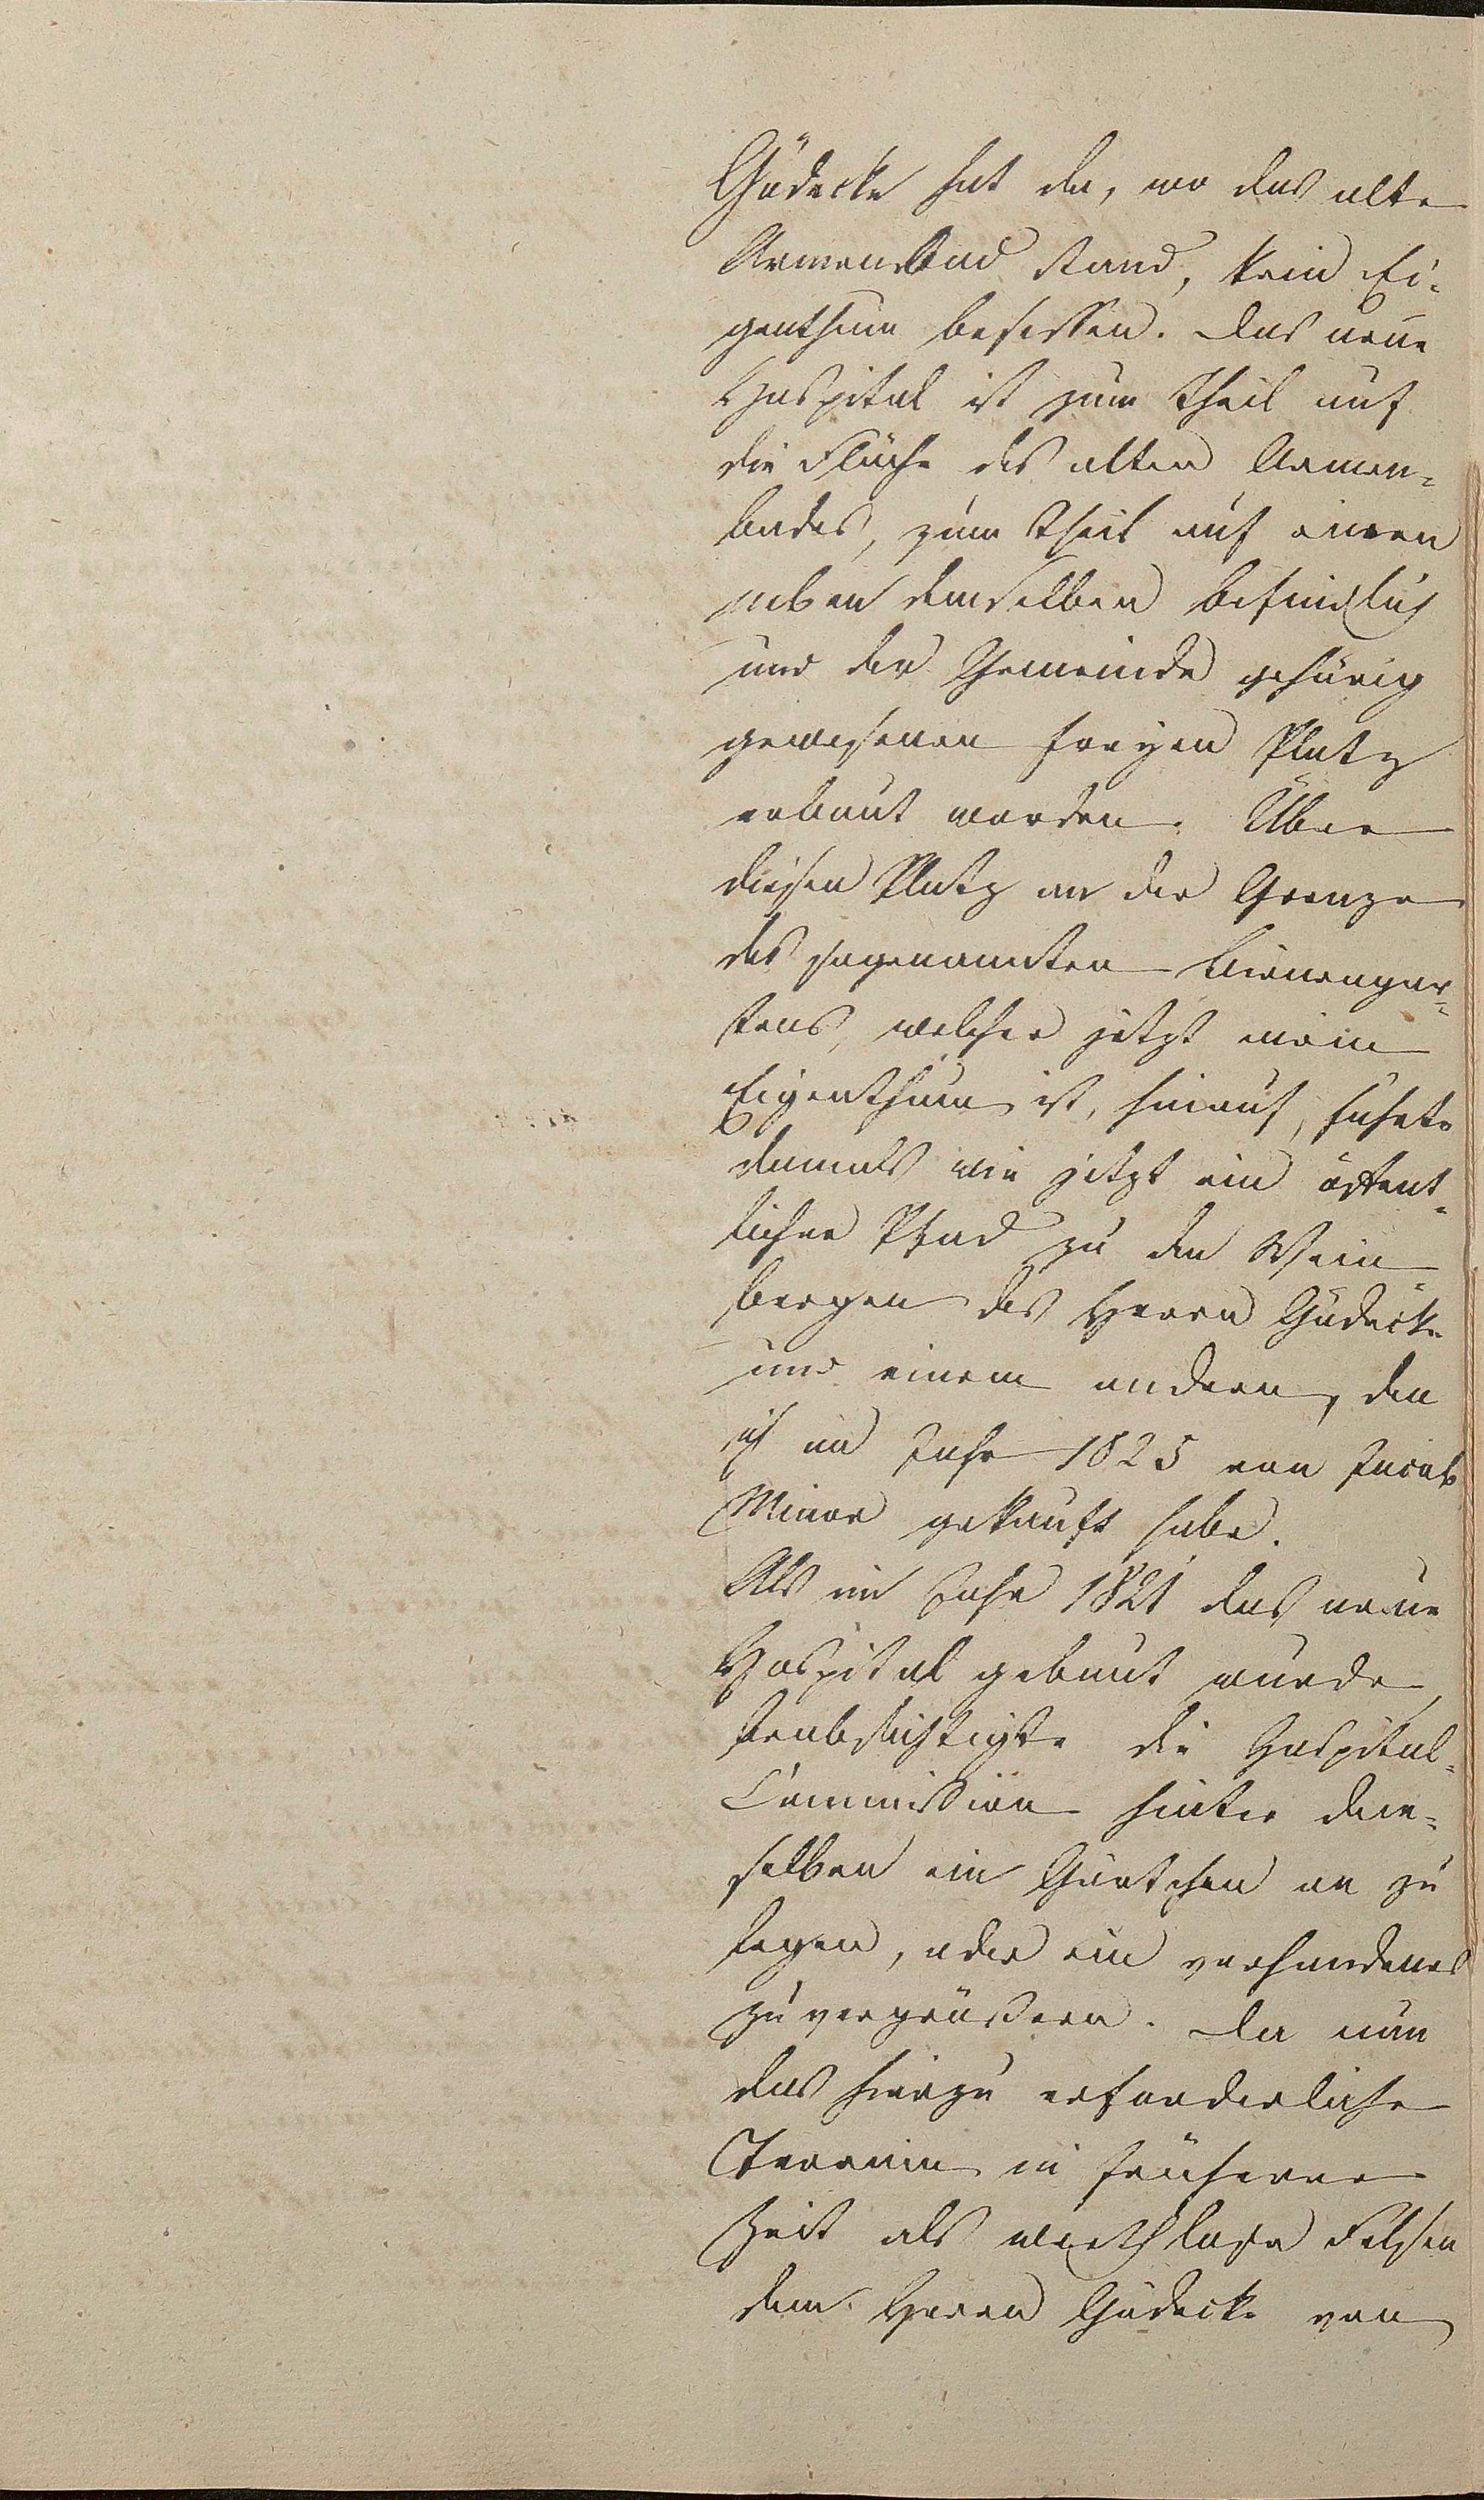 Gödecke hat da, wo das alte
Armenbad stand, kein Ei-
genthum besessen. Das neue
Hospital ist zum Theil auf
die Fläche des alten Armen-
bades, zum Theil auf einen
neben demselben befindlich
und der Gemeinde gehörig
gewesenen freyen Platz
erbaut worden. Über
diesen Platz an der Grenze
des sogenannten Bienengar-
tens, welcher jetzt mein
Eigenthum ist, hinauf, führte
damals wie jetzt ein öffent-
licher Pfad zu den Wein-
bergen des Herrn Gödecke
und einem andern, den
ich im Jahr 1825 von Jacob
Minor gekauft habe.
Als im Jahr 1821 das neue
Hospital gebaut wurde,
beabsichtigte die Hospital-
Commission hinter dem-
selben ein Gärtchen an zu
legen, oder ein vorhandenes
zu vergrößern. Da nun
das hierzu erforderliche
Terrain in früherer
Zeit als werthlose Felsen
dem Herrn Gödecke von